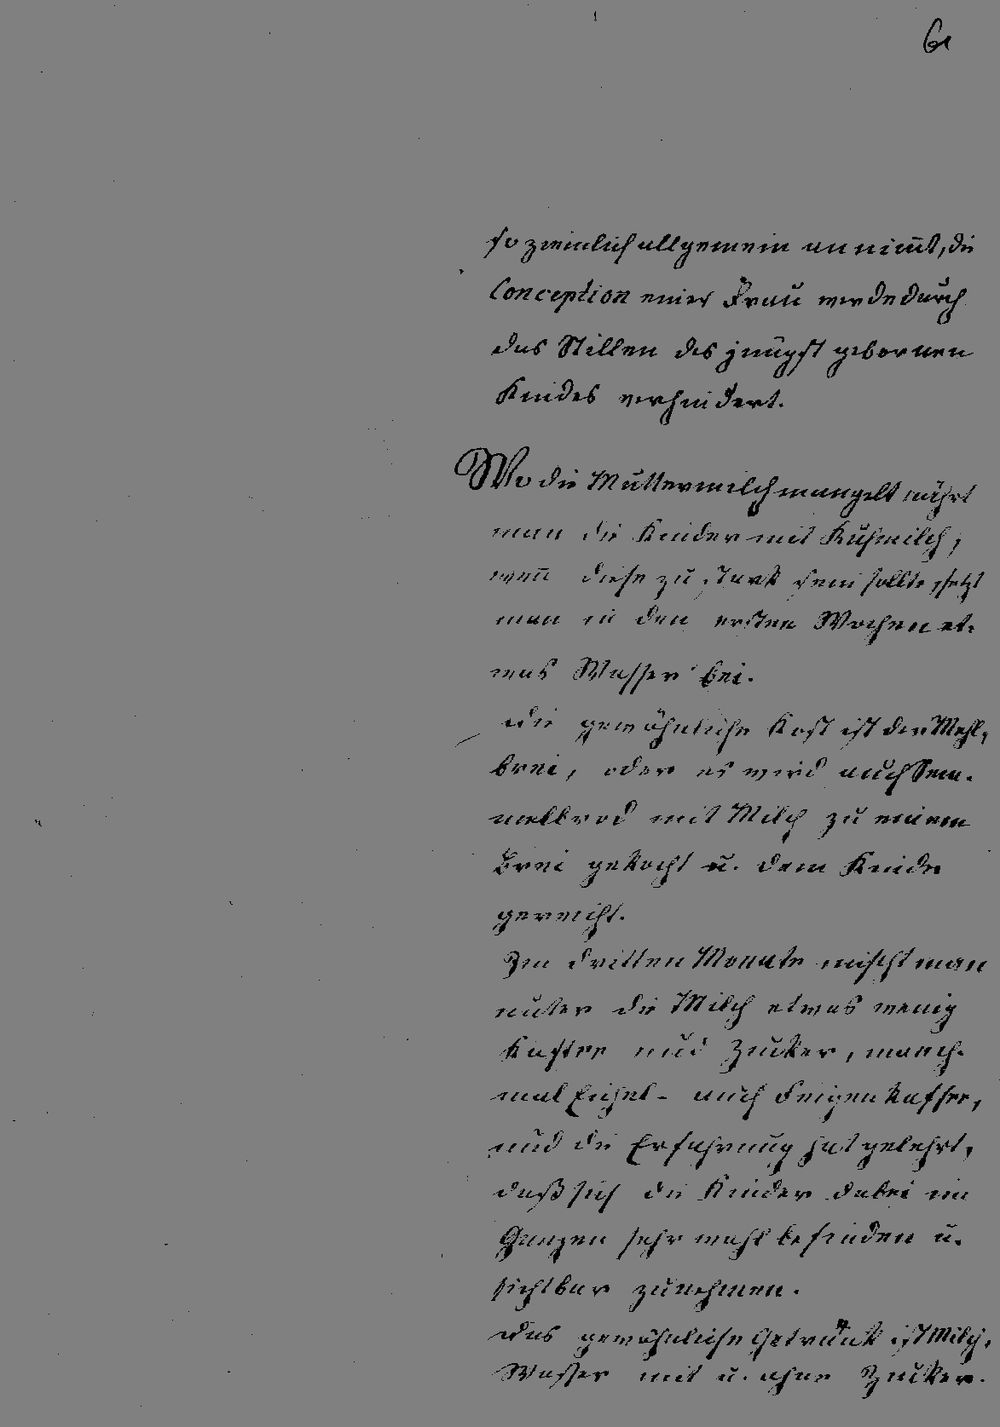 61
so ziemlich allgemein annim̄t, die
Conception einer Frau werde durch
das Stillen des jüngst gebornen
Kindes verhindert.
Wo die Muttermilch mangelt, nährt
man die Kinder mit Kuhmilch;
wen̄ diese zu stark sein sollte, setzt
man in den ersten Wochen et-
was Wasser bei.
Die gewöhnliche Kost ist der Mehl-
brei, oder es wird auch Sem-
melbrod mit Milch zu einem
Brei gekocht u. dem Kinde
gereicht.
Im dritten Monate mischt man
unter die Milch etwas wenig
Kaffee und Zucker, manch-
mal Eichel- auch Feigenkaffee,
und die Erfahrung hat gelehrt,
daß sich die Kinder dabei im
Ganzen sehr wohl befinden u.
sichtbar zunehmen.
Das gewöhnliche Getränk ist Milch,
Wasser mit u. ohne Zucker.